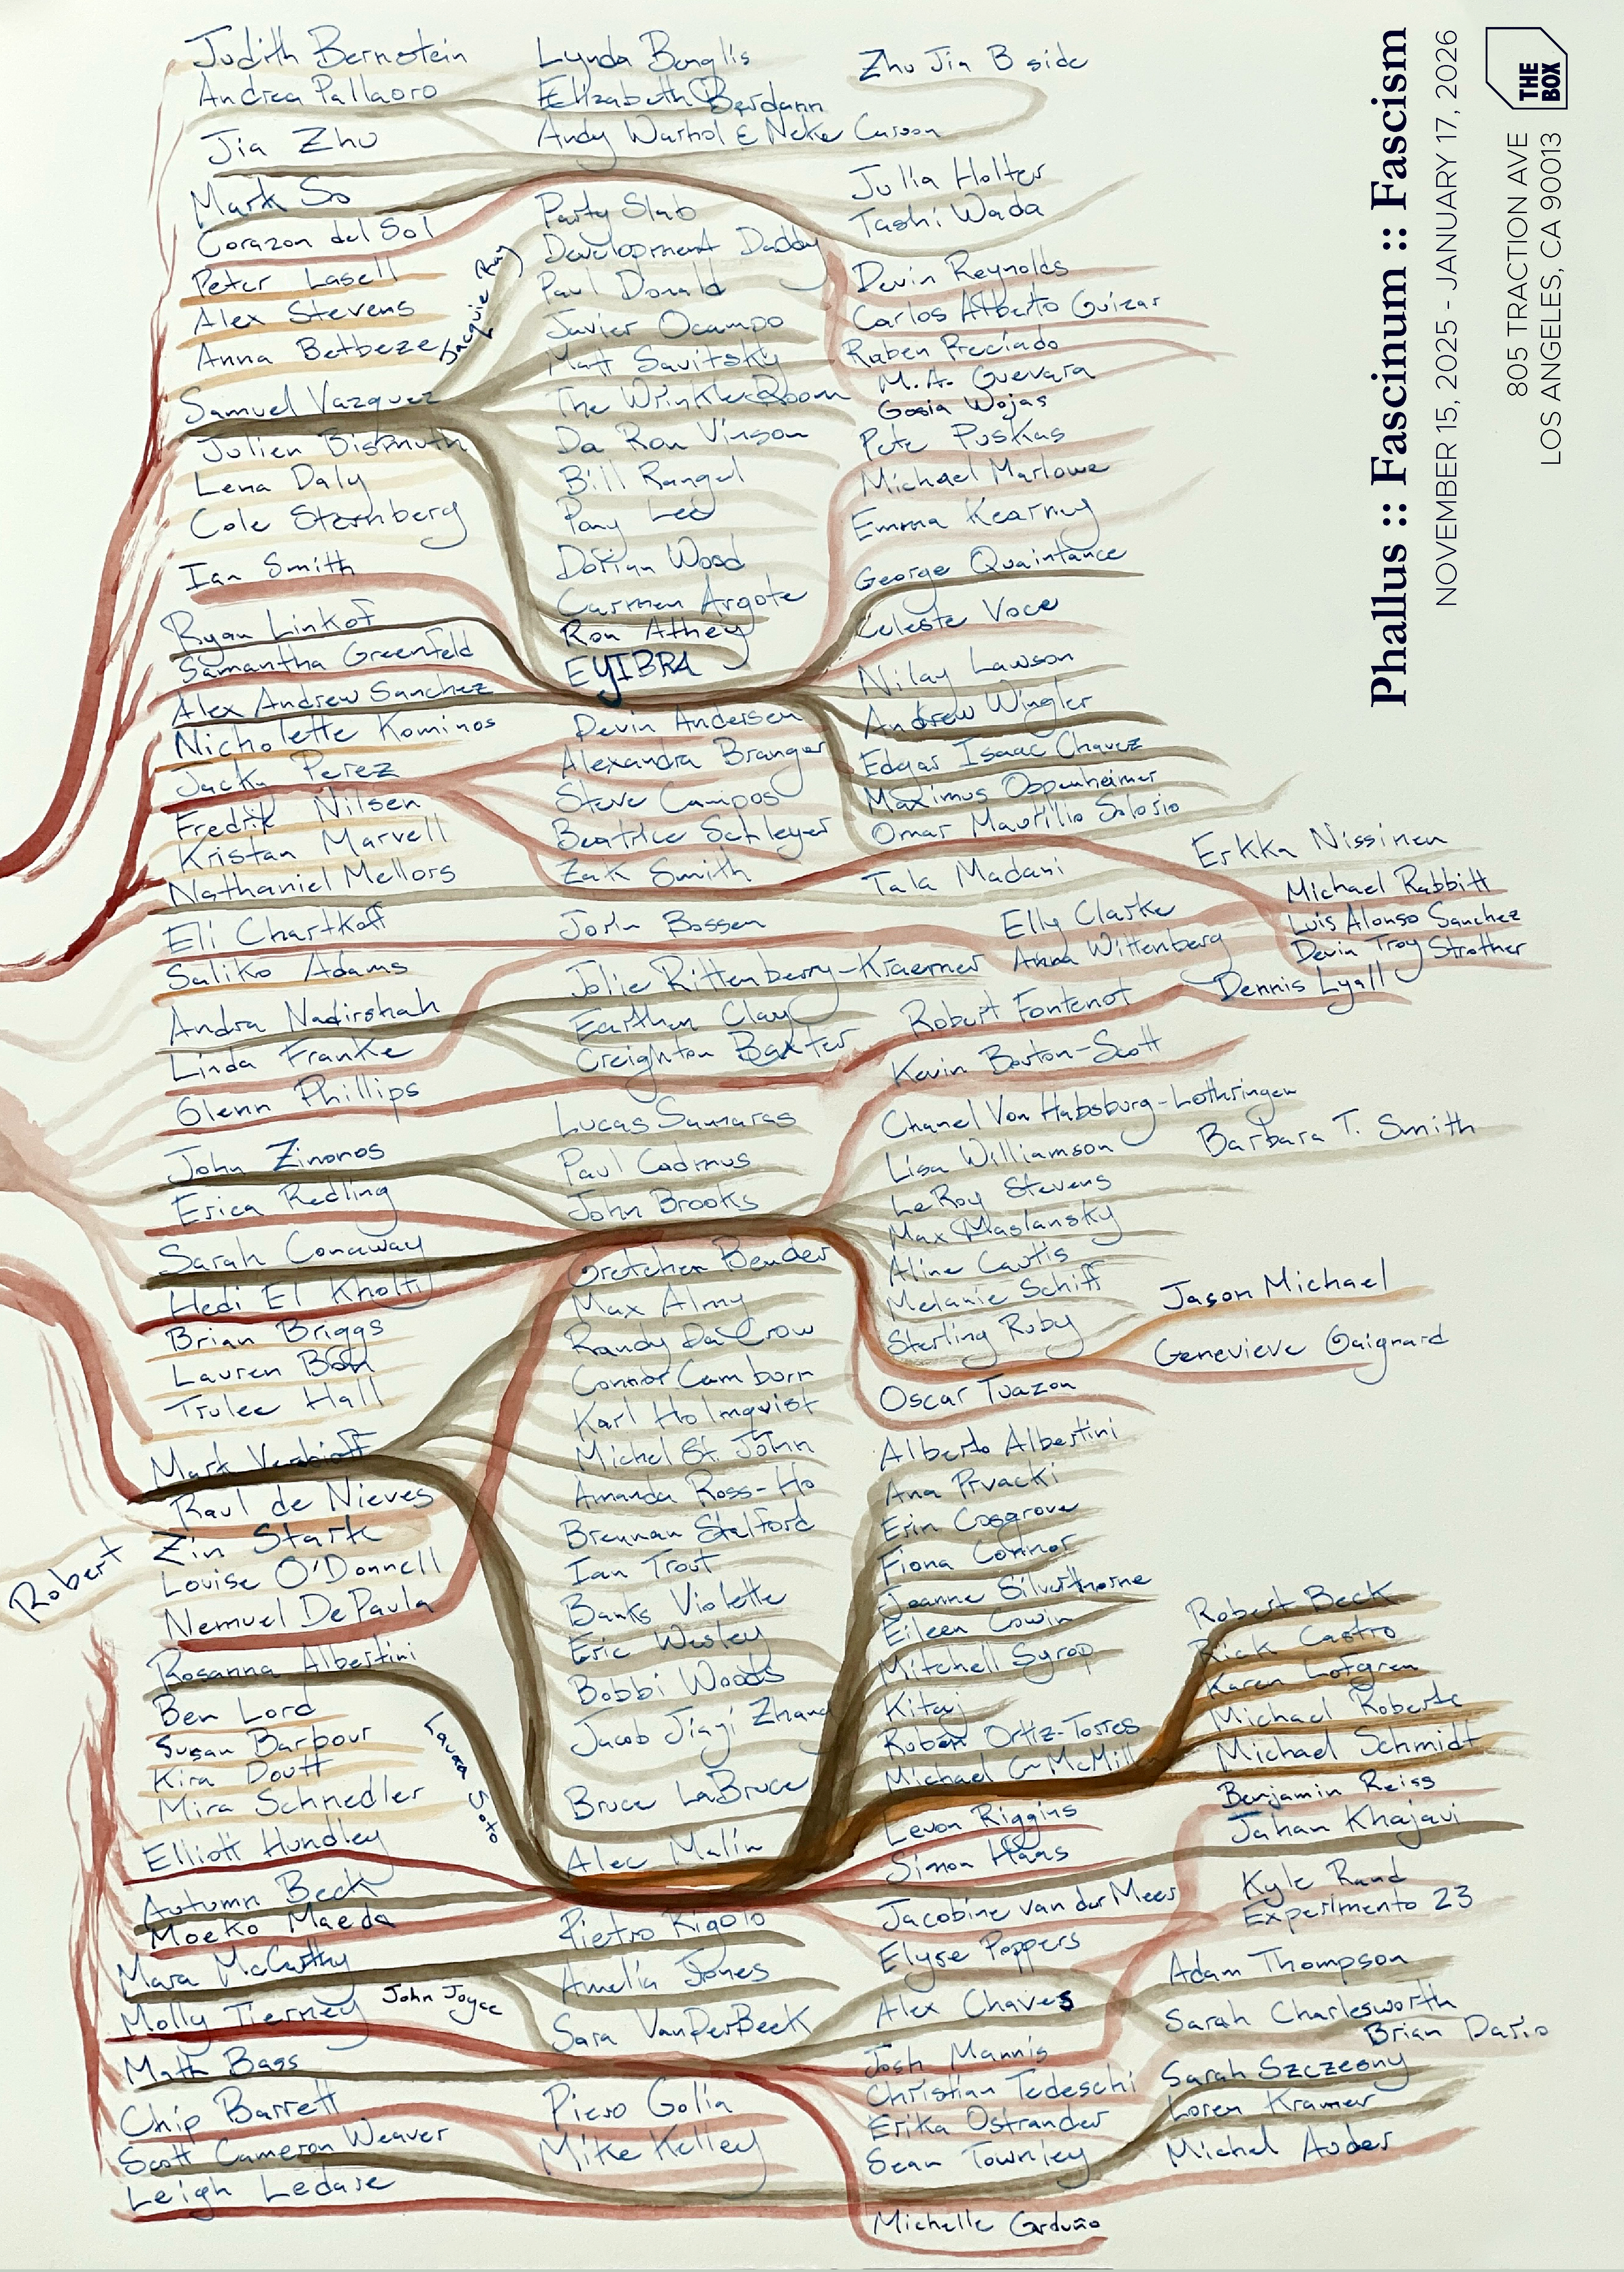 Judith Bernstein
Andrea Pallaoro
Jia Zhu
Mark So
Corazon del Sol
Peter Lasell
Alex Stevens
Anna Betbeze
Samuel Vazquez
Julien Bismuth
Lena Daly
Cole Sternberg
Ian Smith
Ryan Linkof
Samantha Greenfeld
Alex Andrew Sanchez
Nicholette Kominos
Jacky Perez
Fredrik Nilsen
Kristan Marvell
Nathaniel Mellors
Eli Chartkoff
Saliko Adams
Andra Nadirshah
Linda Franke
Glenn Phillips
John Zinonos
Erica Redling
Sarah Conaway
Hedi El Kholti
Brian Briggs
Lauren Bon
Trulee Hall
Mark Verabioff
Raul de Nieves
Zin Stark
Robert
Louise O'Donnell
Nemuel DePaula
Rosanna Albertini
Ben Lord
Susan Barbour
Kira Doutt
Mira Schnedler
Elliott Hundley
Autumn Beck
Moeko Maeda
Mara McCarthy
Molly Tierney
John Joyce
Math Bass
Chip Barrett
Scott Cameron Weaver
Leigh Ledare
Lynda Benglis
Elizabeth Berdann
Andy Warhol & Neke Carson
Party Slab
Development Daddy
Paul Donald
Javier Ocampo
Matt Savitsky
The Wrinkle Room
Da Ron Vinson
Bill Rangel
Pony Lee
Dorian Wood
Carmen Argote
Ron Athey
EYIBRA
Devin Andersen
Alexandra Branger
Steve Campos
Beatrice Schleyer
Zak Smith
Jorin Bossen
Jolie Rittenberry-Kraemer
Earthen Clay
Creighton Baxter
Lucas Samaras
Paul Cadmus
John Brooks
Gretchen Bender
Max Almy
Randy Da Crow
Connor Camburn
Karl Holmqvist
Michel St. John
Amanda Ross-Ho
Brennan Stalford
Ian Trout
Banks Violette
Eric Wesley
Bobbi Woods
Jacob Jiayi Zhang
Laura Soto
Bruce LaBruce
Alec Malin
Pietro Rigolo
Amelia Jones
Sara VanDerBeek
Piero Golia
Mike Kelley
Zhu Jia B side
Julia Holter
Tashi Wada
Devin Reynolds
Carlos Alberto Guizar
Ruben Preciado
M.A. Guevara
Gosia Wojas
Pete Puskas
Michael Marlowe
Emma Kearney
George Quaintance
Celeste Voce
Nilay Lawson
Andrew Wingler
Edgar Isaac Chavez
Maximus Oppenheimer
Omar Maurilio Solorio
Tala Madani
Elly Clarke
Anna Wittenberg
Robert Fontenot
Kevin Borton-Scott
Chanel Von Habsburg-Lothringen
Lisa Williamson
LeRoy Stevens
Max Maslansky
Aline Cautis
Melanie Schiff
Sterling Ruby
Oscar Tuazon
Alberto Albertini
Ana Prvacki
Erin Cosgrove
Fiona Connor
Jeanne Silverthorne
Eileen Cowin
Mitchell Syrop
Kitaj
Rubén Ortiz-Torres
Michael C McMill
Levon Riggins
Simon Haas
Jacobine van der Meer
Elyse Poppers
Alex Chaves
Josh Mannis
Christian Tedeschi
Erika Ostrander
Sean Townley
Michelle Garduño
Erkka Nissinen
Michael Rabbitt
Luis Alonso Sanchez
Devin Troy Strother
Dennis Lyall
Barbara T. Smith
Jason Michael
Genevieve Gaignard
Robert Beck
Rick Castro
Karen Lofgren
Michael Roberts
Michael Schmidt
Benjamin Reiss
Jahan Khajavi
Kyle Rand
Experimento 23
Adam Thompson
Sarah Charlesworth
Brian Dario
Sarah Szczesny
Loren Kramer
Michel Auder
Phallus :: Fascinum :: Fascism
NOVEMBER 15, 2025 - JANUARY 17, 2026
THE
BOX
805 TRACTION AVE
LOS ANGELES, CA 90013